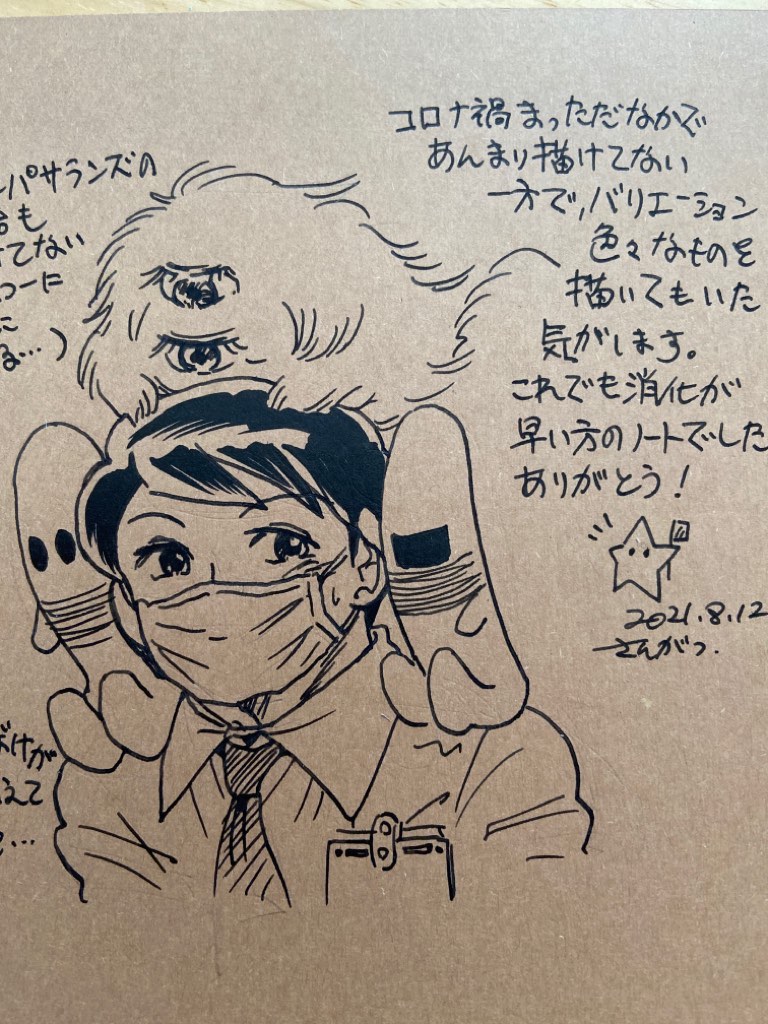 コロナ禍まっただなかで
あんまり描けてない
一方で,バリエーション
色々なものを
描いてもいた
気がします。
これでも消化が
早い方のノートでした
ありがとう!
2021.8.12
さんがつ.
パサランズの
も
てない
に
に
る…)
ぼけが
えて
…